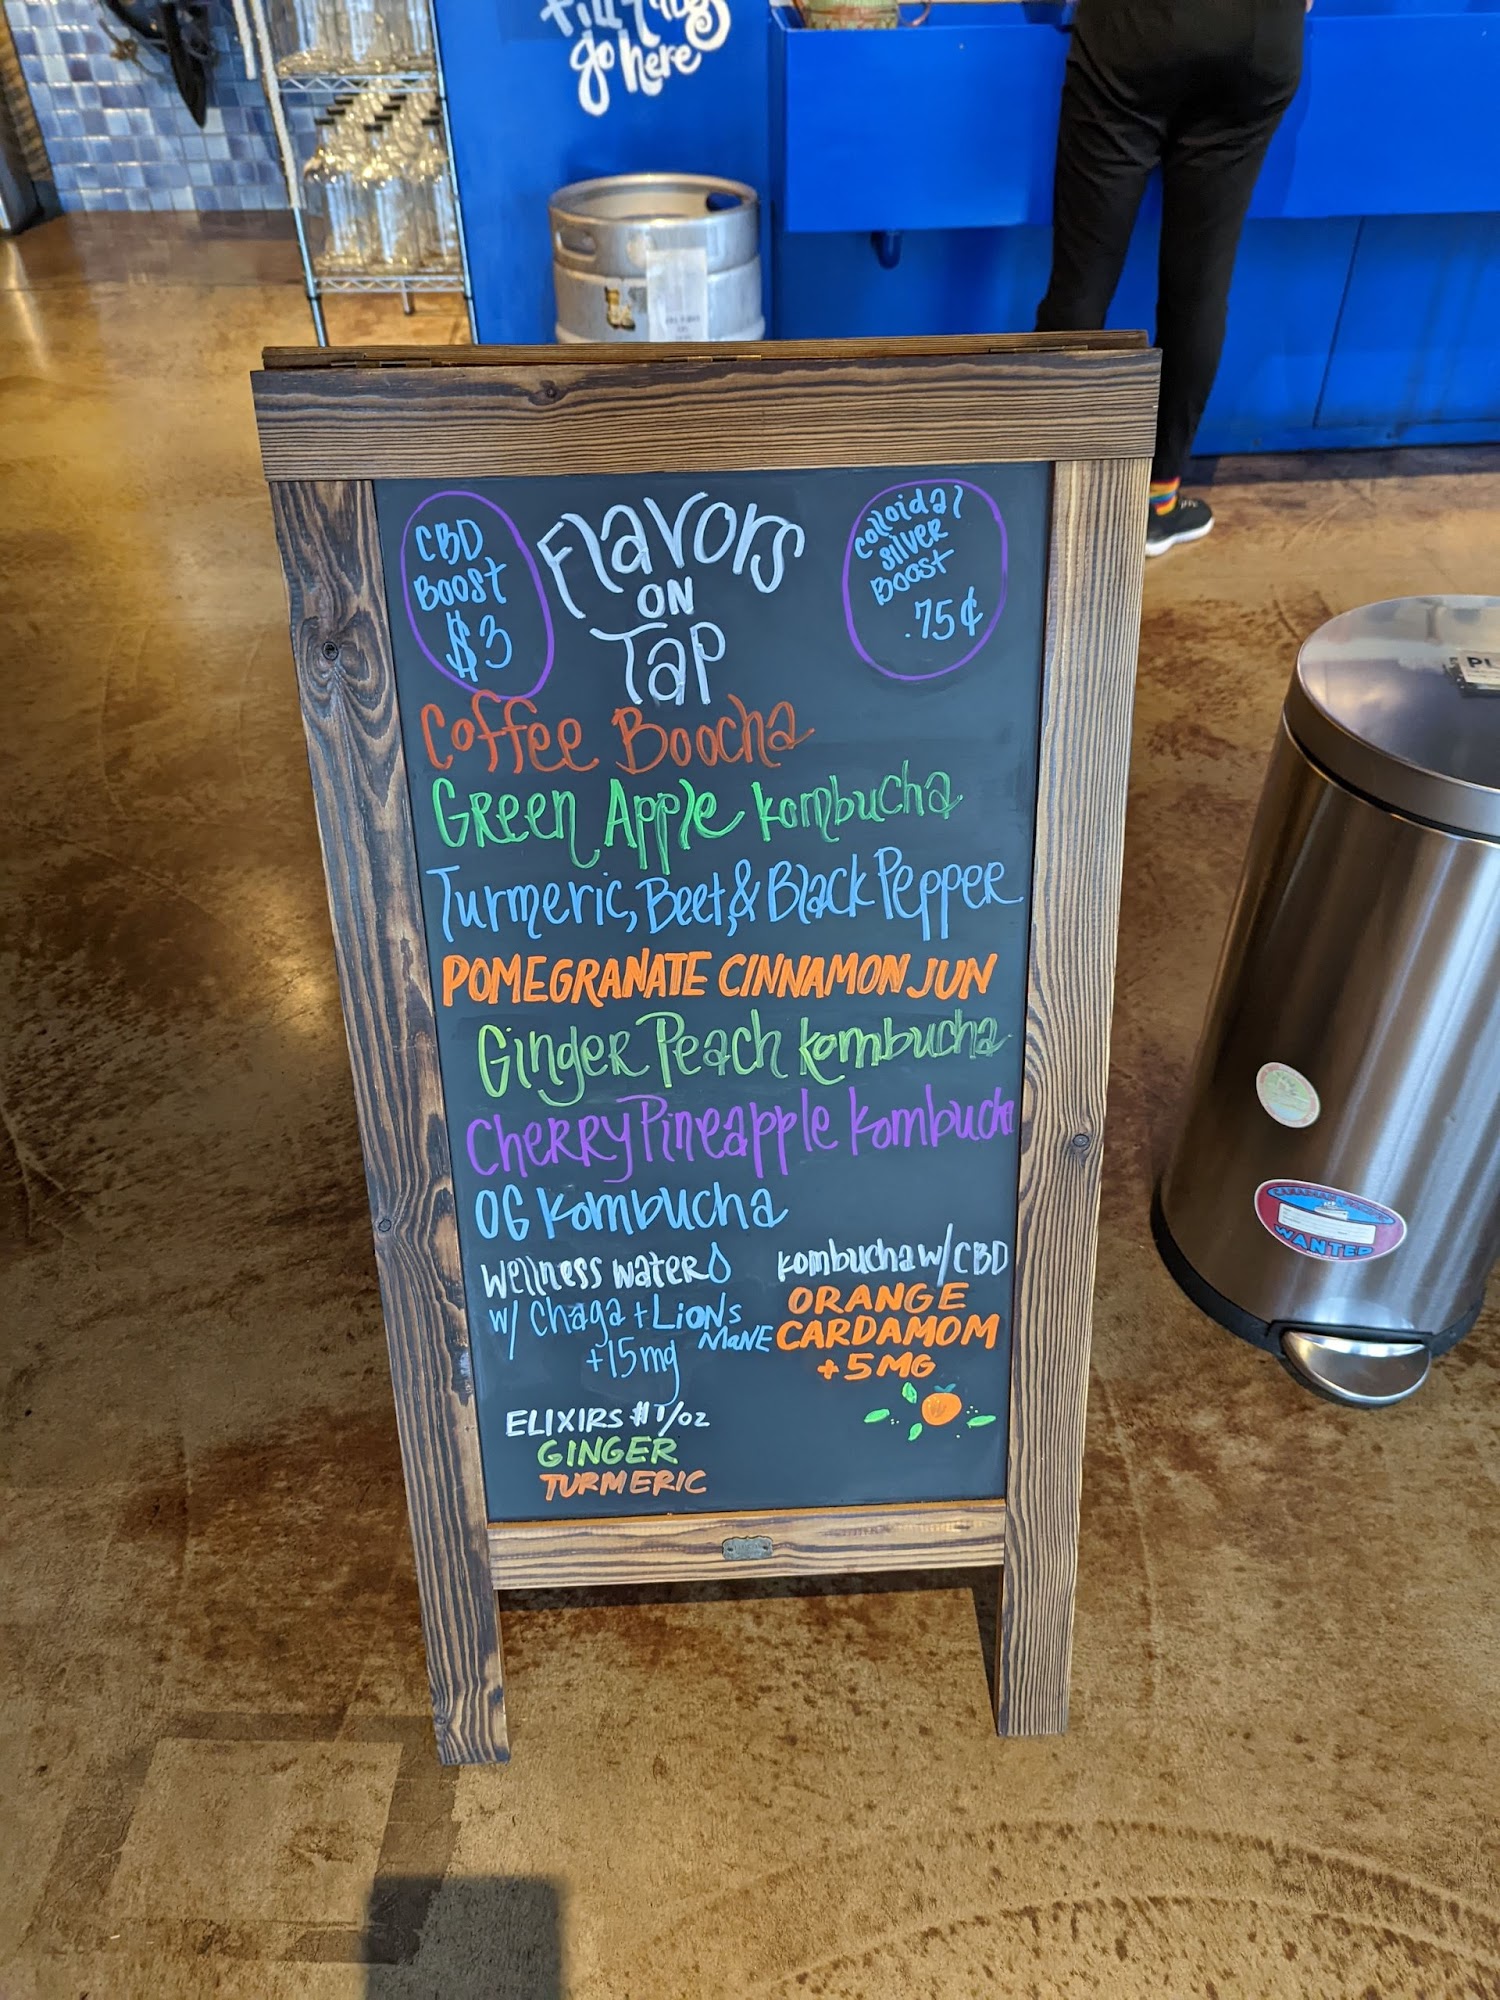 go here
CBD
BOOST
$3
Flavors
ON
TAP
Colloidal
Silver
BOOST
.75¢
Coffee Boocha
GReen Apple kombucha
Turmeric, Beet, & Black Pepper
POMEGRANATE CINNAMON JUN
GingeR Peach kombucha
CheRRy Pineapple kombucha
OG kombucha
wellness wateR
w/ Chaga + LIONS
MaNE
+15mg
kombucha w/ CBD
ORANGE
CARDAMOM
+5MG
ELIXIRS $1/OZ
GINGER
TURMERIC
WANTED